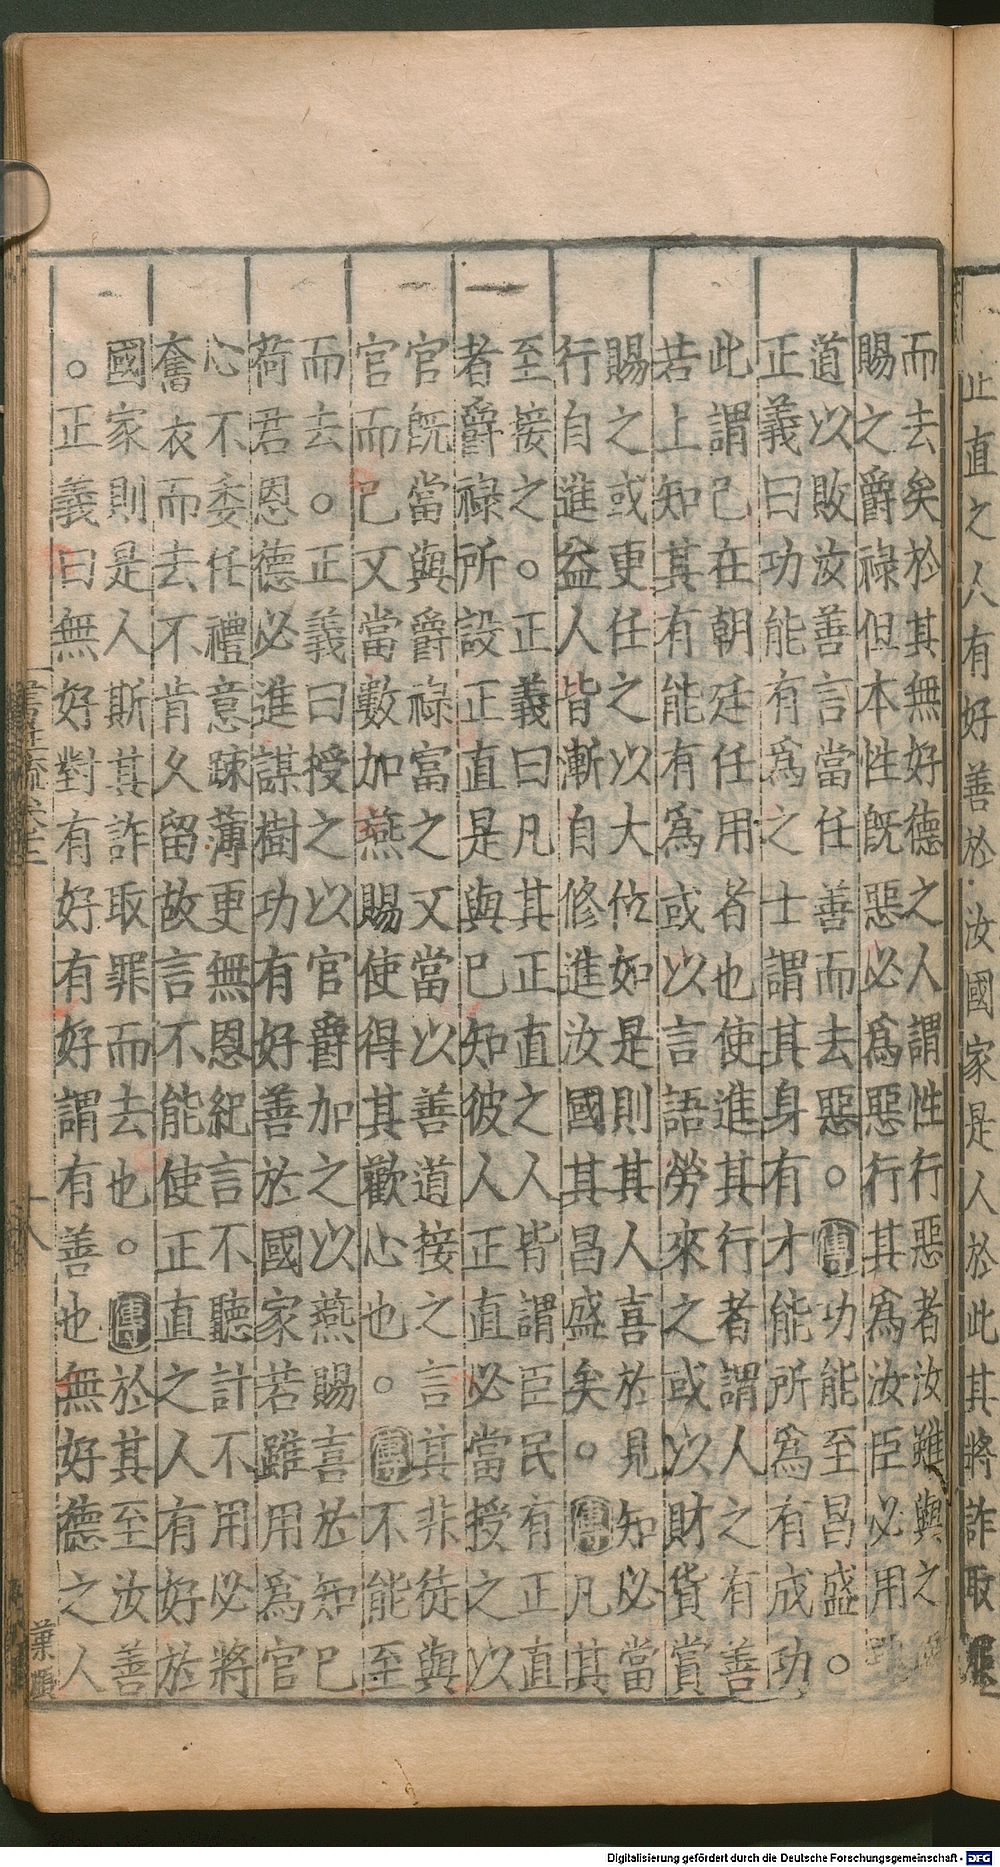 正直之人有好善於汝國家是人於此其將詐取罪
而去矣於其無好德之人謂性行惡者汝雖與之
賜之爵祿但本性既惡必爲惡行其爲汝臣必用
道以敗汝善言當任善而去惡。傳功能至昌盛。
正義曰功能有爲之士謂其身有才能所爲有成功
此謂已在朝廷任用者也使進其行者謂人之有善
若上知其有能有爲或以言語勞來之或以財貨賞
賜之或更任之以大位如是則其人喜於見知必當
行自進益人皆漸自修進汝國其昌盛矣。傳凡其
至接之。正義曰凡其正直之人皆謂臣民有正直
者爵祿所設正直是與已知彼人正直必當授之以
官既當與爵祿富之又當以善道接之言其非徒與
官而已又當數加燕賜使得其歡心也。傳不能至
而去。正義曰授之以官爵加之以燕賜喜於知已
荷君恩德必進謀樹功有好善於國家若雖用爲官
心不委任禮意疎薄更無恩紀言不聽計不用必將
奮衣而去不肯久留故言不能使正直之人有好於
國家則是人斯其詐取罪而去也。傳於其至汝善
。正義曰無好對有好有好謂有善也無好德之人
十八
Digitalisierung gefördert durch die Deutsche Forschungsgemeinschaft - DFG